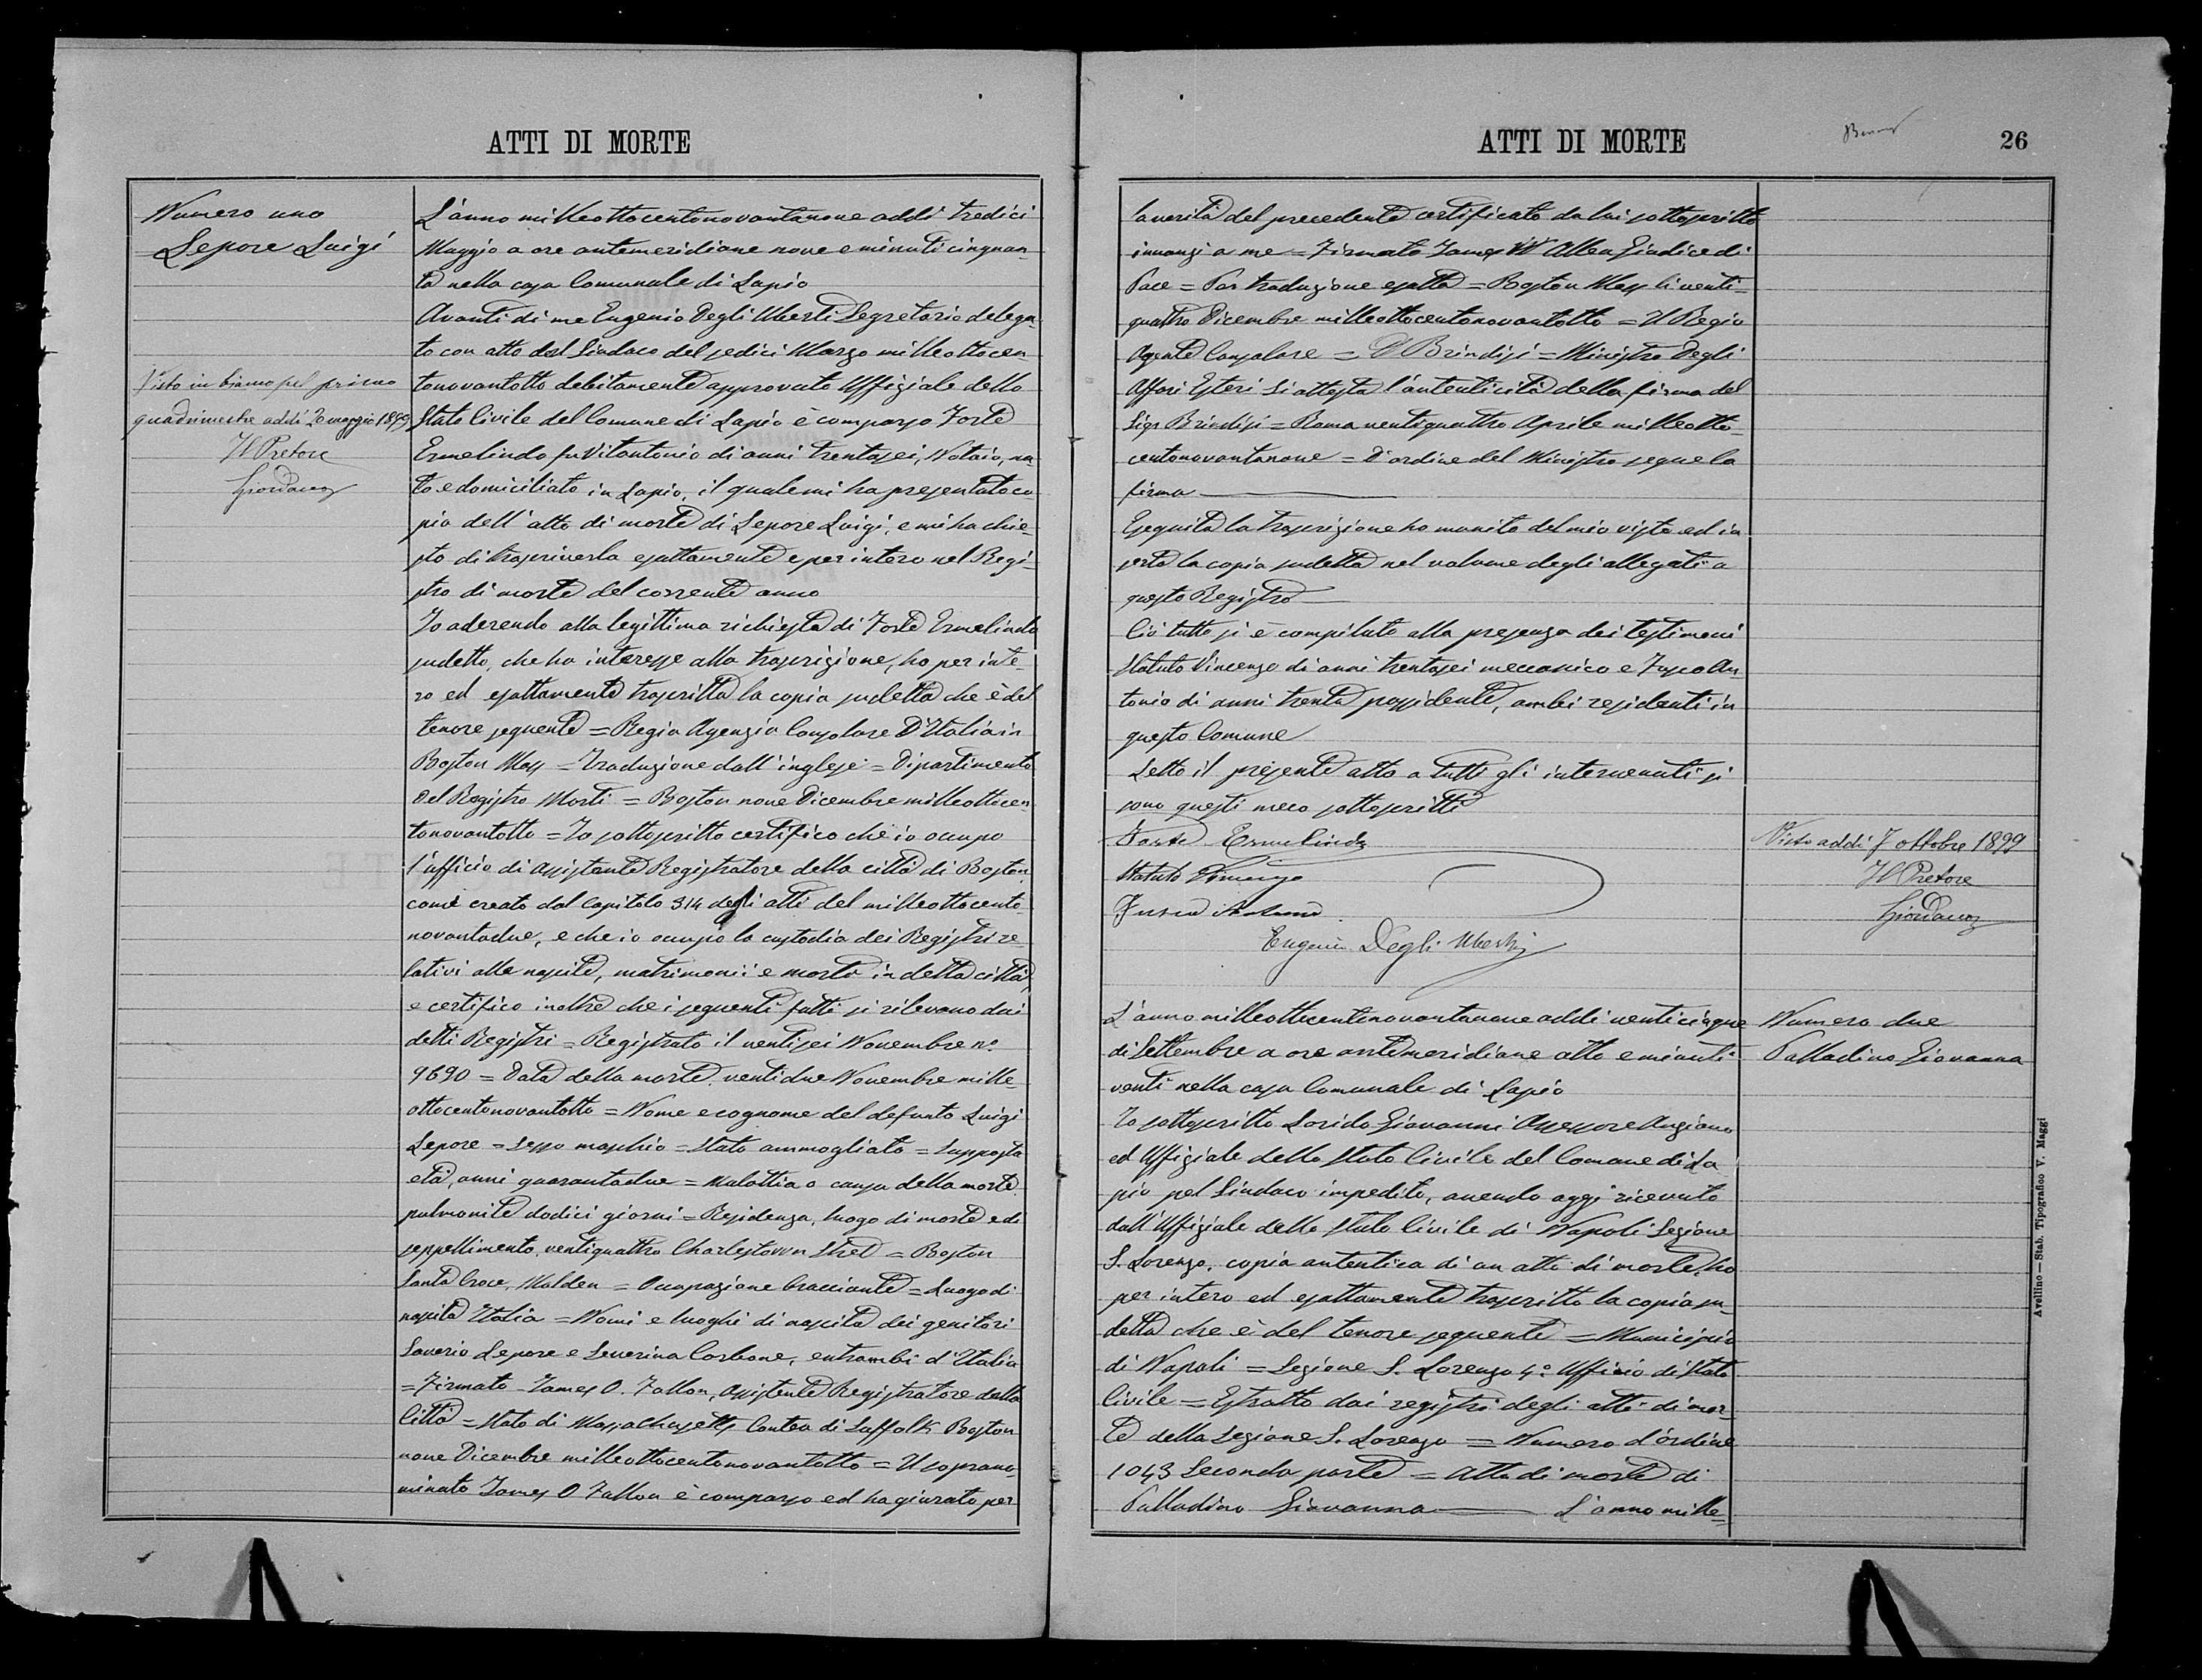 ATTI DI MORTE
Numero uno
Lepore Luigi
Visto in bianco pel primo
quadrimestre addì 20 maggio 1899
Il Pretore
Giordano
L'anno milleottocentonovantanove addì tredici
Maggio a ore antemeridiane nove e minuti cinquan-
ta nella casa Comunale di Lapio
Avanti di me Eugenio Degli Uberti Segretario delega-
to con atto del Sindaco del sedici Marzo milleottocen
tonovantotto debitamente approvato Uffiziale dello
Stato Civile del Comune di Lapio è comparso Forte
Ermelindo fu Vitantonio di anni trentasei, Notaio, na-
to e domiciliato in Lapio, il quale mi ha presentato co
pia dell'atto di morte di Lepore Luigi, e mi ha chie-
sto di trascriverla esattamente e per intero nel Regi-
stro di morte del corrente anno
Io aderendo alla legittima richiesta di Forte Ermelindo
sudetto, che ha interesse alla trascrizione, ho per inte-
ro ed esattamente trascritta la copia sudetta che è del
tenore seguente = Regia Agenzia Consolare D'Italia in
Boston Mass = Traduzione dall'inglese = Dipartimento
Del Registro Morti = Boston nove Dicembre milleottocen
tonovantotto = Io sottoscritto certifico che io occupo
l'ufficio di Assistente Registratore della città di Boston,
come creato dal Capitolo 314 degli atti del milleottocento
novantadue, e che io occupo la custodia dei Registri re-
lativi alle nascite, matrimonii e morte in detta città,
e certifico inoltre che i seguenti fatti si rilevano dai
detti Registri = Registrato il ventisei Novembre n.º
9690 = Data della morte. ventidue Novembre mille-
ottocentonovantotto = Nome e cognome del defunto Luigi
Lepore = Sesso maschio = Stato ammogliato = Supposta
età, anni quarantadue = Malattia o causa della morte.
pulmonite dodici giorni = Residenza, luogo di morte e di
seppellimento, ventiquattro Charlestown Stret = Boston
Santa Croce, Malden = Occupazione bracciante = Luogo di
nascita Italia = Nomi e luoghi di nascita dei genitori
Saverio Lepore e Severina Carbone, entrambi d'Italia
= Firmato - James O. Fallon, Assistente Registratore della
Città = Stato di Massachusetts Contea di Suffolk Boston
nove Dicembre milleottocentonovantotto = Il soprano-
minato James O Fallon è comparso ed ha giurato per
ATTI DI MORTE
26
la verità del precedente certificato da lui sottoscritto
innanzi a me = Firmato James W Allen Giudice di
Pace = Per traduzione esatta = Boston Mass li venti-
quattro Dicembre milleottocentonovantotto = Il Regio
Agente Consolare = D Brindisi = Ministro Degli
Affari Esteri Si attesta l'autenticità della firma del
Sigr Brindisi = Roma ventiquattro Aprile milleotto-
centonovantanove = D'ordine del Ministro segue la
firma
Eseguita la trascrizione ho munito del mio visto ed in
serta la copia sudetta nel volume degli allegati a
questo Registro
Ciò tutto si è compiluto alla presenza dei testimoni
Statuto Vincenzo di anni trentasei meccanico e Fusco An
tonio di anni trenta possidente, ambi residenti in
questo Comune
Letto il presente atto a tutti gli intervenuti si
sono questi meco sottoscritti
Forte Ermelindo
Statuto Vincenzo
Fusco Antonio
Eugenio Degli Uberti
Visto addì 7 ottobre 1899
Il Pretore
Giordano
L'anno milleottocentonovantanove addì venticinque
di Settembre a ore antimeridiane otto e minuti
venti nella casa Comunale di Lapio
Io sottoscritto Lorido Giovanni Assessore Anziano
ed Uffiziale dello Stato Civile del Comune di La
pio pel Sindaco impedito, avendo oggi ricevuto
dall'Uffiziale dello Stato Civile di Napoli Sezione
S. Lorenzo, copia autentica di un atto di morte, ho
per intero ed esattamente trascritto la copia su-
detta che è del tenore seguente = Municipio
di Napoli = Sezione S. Lorenzo 4.º Ufficio di Stato
Civile = Estratto dai registri degli atti di mor-
te della Sezione S. Lorenzo = Numero d'ordine
1043 Seconda parte = Atto di morte di
Palladino Giovanna L'anno mille-
Numero due
Palladino Giovanna
Avellino — Stab. Tipografico V. Maggi